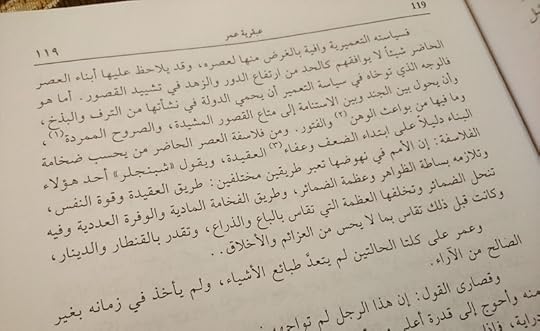 119
عبقرية عمر
١١٩
فسياسته التعميرية وافية بالغرض منها لعصره، وقد يلاحظ عليها أبناء العصر
الحاضر شيئاً لا يوافقهم كالحد من ارتفاع الدور والزهد في تشييد القصور. أما هو
فالوجه الذي توخاه في سياسة التعمير أن يحمي الدولة في نشأتها من الترف والبذخ،
وأن يحول بين الجند وبين الاستنامة إلى متاع القصور المشيدة، والصروح الممردة(١)،
وما فيها من بواعث الوهن(٢) والفتور. ومن فلاسفة العصر الحاضر من يحسب ضخامة
البناء دليلاً على ابتداء الضعف وعفاء(٣) العقيدة، ويقول «شبنجلر» أحد هؤلاء
الفلاسفة: إن الأمم في نهوضها تعبر طريقين مختلفين: طريق العقيدة وقوة النفس،
وتلازمه بساطة الظواهر وعظمة الضمائر، وطريق الفخامة المادية والوفرة العددية وفيه
تنحل الضمائر وتخلفها العظمة التي تقاس بالباع والذراع، وتقدر بالقنطار والدينار،
وكانت قبل ذلك تقاس بما لا يحس من العزائم والأخلاق..
وعمر على كلتا الحالتين لم يتعدَّ طبائع الأشياء، ولم يأخذ في زمانه بغير
الصالح من الآراء.
وقصارى القول: إن هذا الرجل لم تواجهه
منه وأحوج إلى قدرة أعلى
دراية،